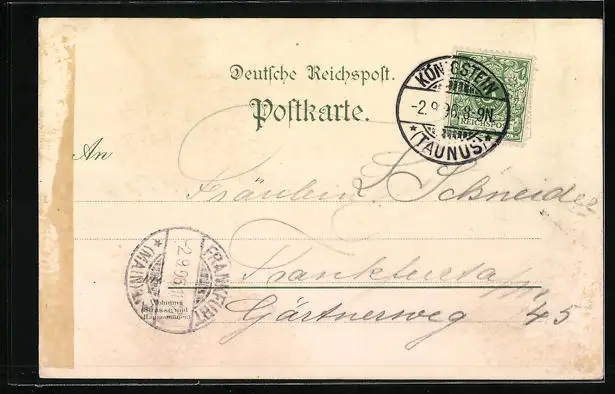 Deutsche Reichspost.
Postkarte.
KÖNIGSTEIN
-2.9.96. 8-9N
*(TAUNUS)*
REICHSPOST
An
Fräulein L. Schneider
Frankfurt a/m
Gärtnerweg 45
FRANKFURT
-2.9.96
(MAIN) *
Wohnung
(Strasse und
Hausnummer)